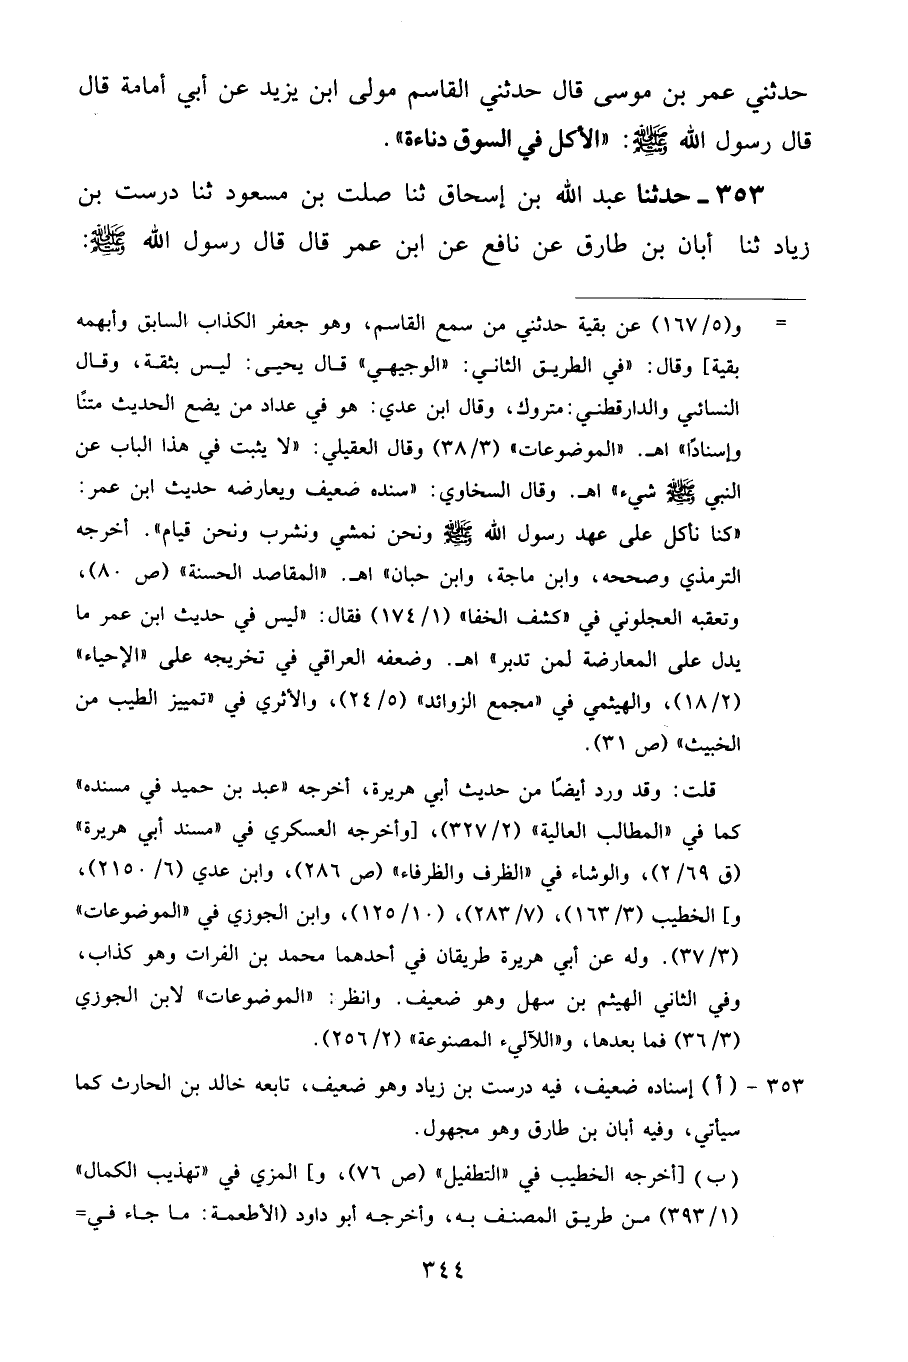 حدثني عمر بن موسى قال حدثني القاسم مولى ابن يزيد عن أبي أمامة قال
قال رسول الله ﷺ: «الأكل في السوق دناءة».
٣٥٣ - حدثنا عبد الله بن إسحاق ثنا صلت بن مسعود ثنا درست بن
زياد ثنا أبان بن طارق عن نافع عن ابن عمر قال قال رسول الله ﷺ:
= و(١٦٧/٥) عن بقية حدثني من سمع القاسم، وهو جعفر الكذاب السابق وأبهمه
بقية] وقال: «في الطريق الثاني: «الوجيهي» قال يحيى: ليس بثقة، وقال
النسائي والدارقطني: متروك، وقال ابن عدي: هو في عداد من يضع الحديث متنًا
وإسنادًا» اهـ. «الموضوعات» (٣٨/٣) وقال العقيلي: «لا يثبت في هذا الباب عن
النبي ﷺ شيء» اهـ. وقال السخاوي: «سنده ضعيف ويعارضه حديث ابن عمر:
«كنا نأكل على عهد رسول الله ﷺ ونحن نمشي ونشرب ونحن قيام». أخرجه
الترمذي وصححه، وابن ماجة، وابن حبان» اهـ. «المقاصد الحسنة» (ص ٨٠)،
وتعقبه العجلوني في «كشف الخفا» (١٧٤/١) فقال: «ليس في حديث ابن عمر ما
يدل على المعارضة لمن تدبر» اهـ. وضعفه العراقي في تخريجه على «الإحياء»
(١٨/٢)، والهيثمي في «مجمع الزوائد» (٢٤/٥)، والأثري في «تمييز الطيب من
الخبيث» (ص ٣١).
قلت: وقد ورد أيضًا من حديث أبي هريرة، أخرجه «عبد بن حميد في مسنده»
كما في «المطالب العالية» (٣٢٧/٢)، [وأخرجه العسكري في «مسند أبي هريرة»
(ق ٢/٦٩)، والوشاء في «الظرف والظرفاء» (ص ٢٨٦)، وابن عدي (٢١٥٠/٦)،
و] الخطيب (١٦٣/٣)، (٢٨٣/٧)، (١٢٥/١٠)، وابن الجوزي في «الموضوعات»
(٣٧/٣). وله عن أبي هريرة طريقان في أحدهما محمد بن الفرات وهو كذاب،
وفي الثاني الهيثم بن سهل وهو ضعيف. وانظر: «الموضوعات» لابن الجوزي
(٣٦/٣) فما بعدها، و«اللآليء المصنوعة» (٢٥٦/٢).
٣٥٣ - (أ) إسناده ضعيف، فيه درست بن زياد وهو ضعيف، تابعه خالد بن الحارث كما
سيأتي، وفيه أبان بن طارق وهو مجهول.
(ب) [أخرجه الخطيب في «التطفيل» (ص ٧٦)، و] المزي في «تهذيب الكمال»
(٣٩٣/١) من طريق المصنف به، وأخرجه أبو داود (الأطعمة: ما جاء في=
٣٤٤